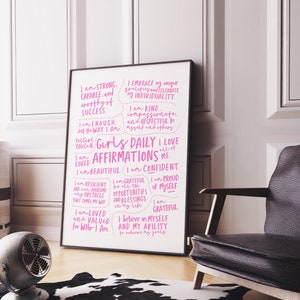 I am STRONG,
CAPABLE, and
worthy of
SUCCESS
I EMBRACE my unique
qualities and celebrate
my INDIVIDUALITY
I am ENOUGH,
just the WAY I am
I am KIND,
compassionate,
and RESPECTFUL to
myself and others
Girls DAILY
AFFIRMATIONS
I LOVE
all of
ME
I am
LOVED
I am BEAUTIFUL
I am CONFIDENT
I am RESILIENT
and can overcome
any OBSTACLE
that comes my way
I am GRATEFUL
for all the
OPPORTUNITIES
and BLESSINGS
in my life
I am PROUD
of MYSELF
I am
GRATEFUL
I am LOVED
and VALUED
for WHO I AM
I believe in MYSELF
and MY ABILITY
to achieve my goals